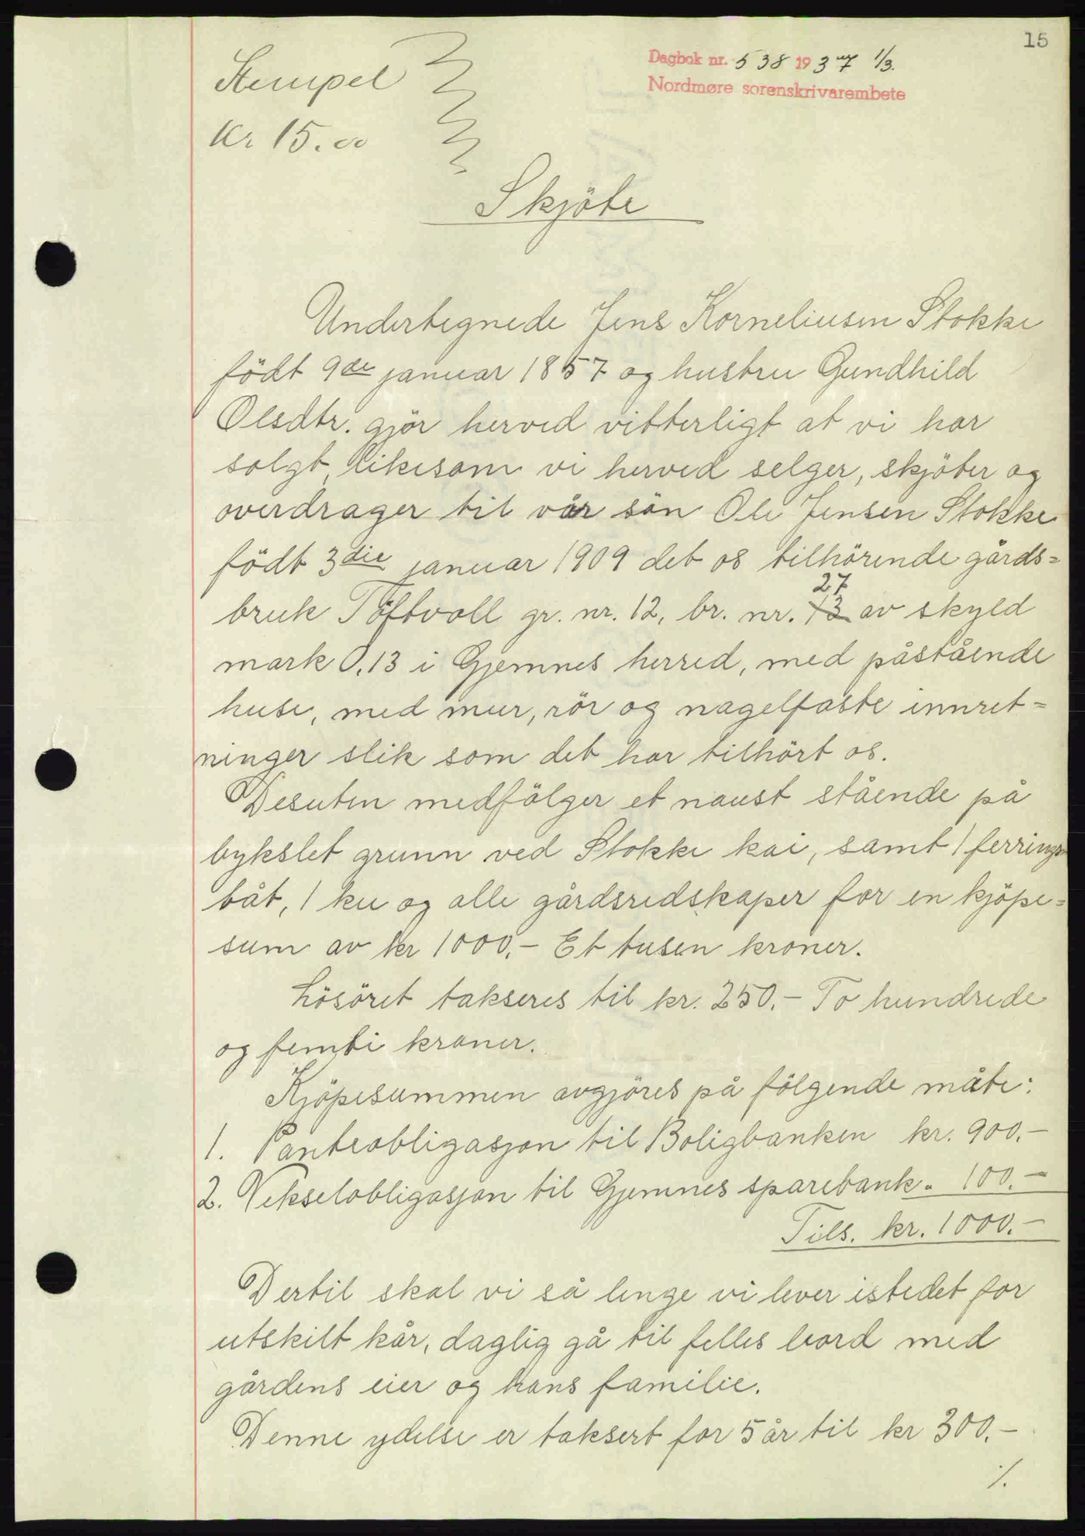 15
Dagbok nr. 538 1937 1/3.
Nordmøre sorenskrivarembete
Stempel
Kr 15.00
Skjöte
Undertegnede Jens Korneliusen Stokke
födt 9de januar 1857 og hustru Gundhild
Olsdtr. gjör herved vitterligt at vi har
solgt, likesom vi herved selger, skjöter og
overdrager til vår sön Ole Jensen Stokke
födt 3die januar 1909 det os tilhörende gårds=
27
bruk Töftvoll gr. nr. 12, br. nr. 13 av skyld
mark 0,13 i Gjemnes herred, med påstående
huse, med mur, rör og nagelfaste innret=
ninger slik som det har tilhört os.
Desuten medfölger et naust stående på
bykslet grunn ved Stokke kai, samt 1 ferrings
båt, 1 ku og alle gårdsredskaper for en kjöpe=
sum av kr 1000,- Et tusen kroner.
Lösöret takseres til kr. 250.- To hundrede
og femti kroner.
Kjöpesummen avgjöres på fölgende måte:
1. Panteobligasjon til Boligbanken kr. 900.-
2. Vekselobligasjon til Gjemnes sparebank " 100.-
Tils. kr. 1000.-
Dertil skal vi så lenge vi lever istedet for
utskilt kår, daglig gå til felles bord med
gårdens eier og hans familie.
Denne ydelse er taksert for 5 år til kr 300.-
./.